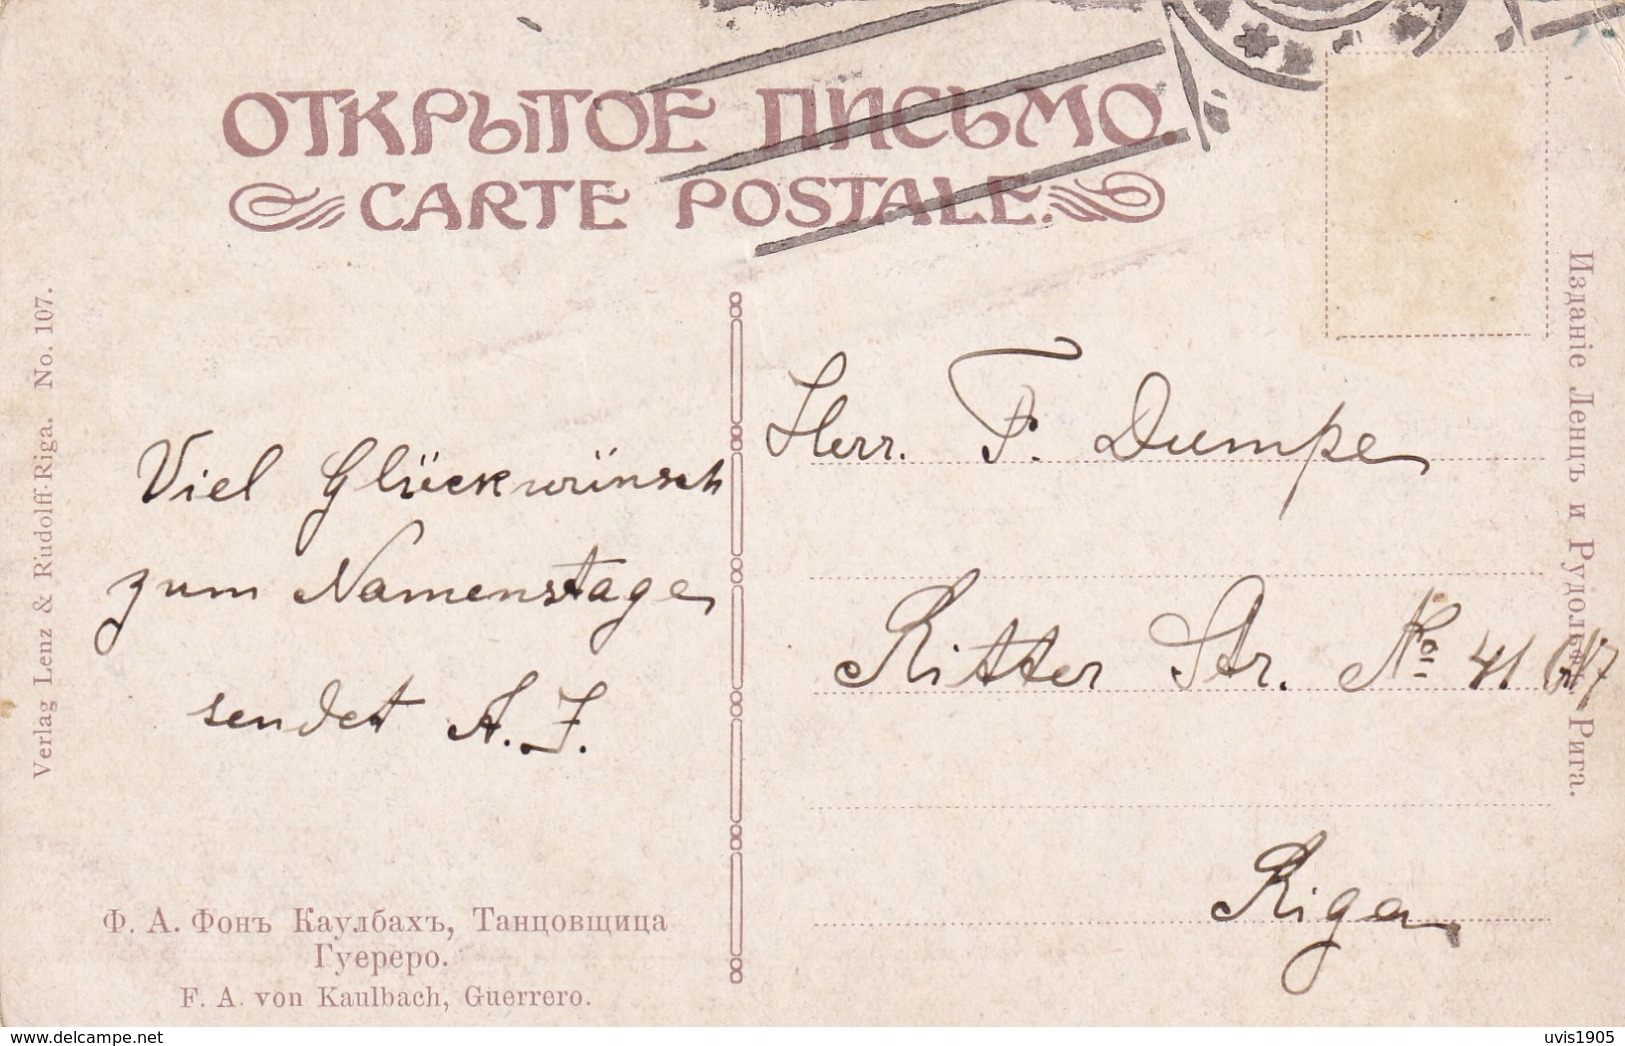 ОТКРЫТОЕ ПИСЬМО.
CARTE POSTALE.
Verlag Lenz & Rudolff-Riga. No. 107.
Изданіе Ленцъ и Рудольфъ Рига.
Viel Glückwünsch
zum Namenstage
sendet A. J.
Herr. F. Dumpe
Ritter Str. No 41
Riga
Ф. А. Фонъ Каулбахъ, Танцовщица
Гуереро.
F. A. von Kaulbach, Guerrero.
www.delcampe.net
uvis1905